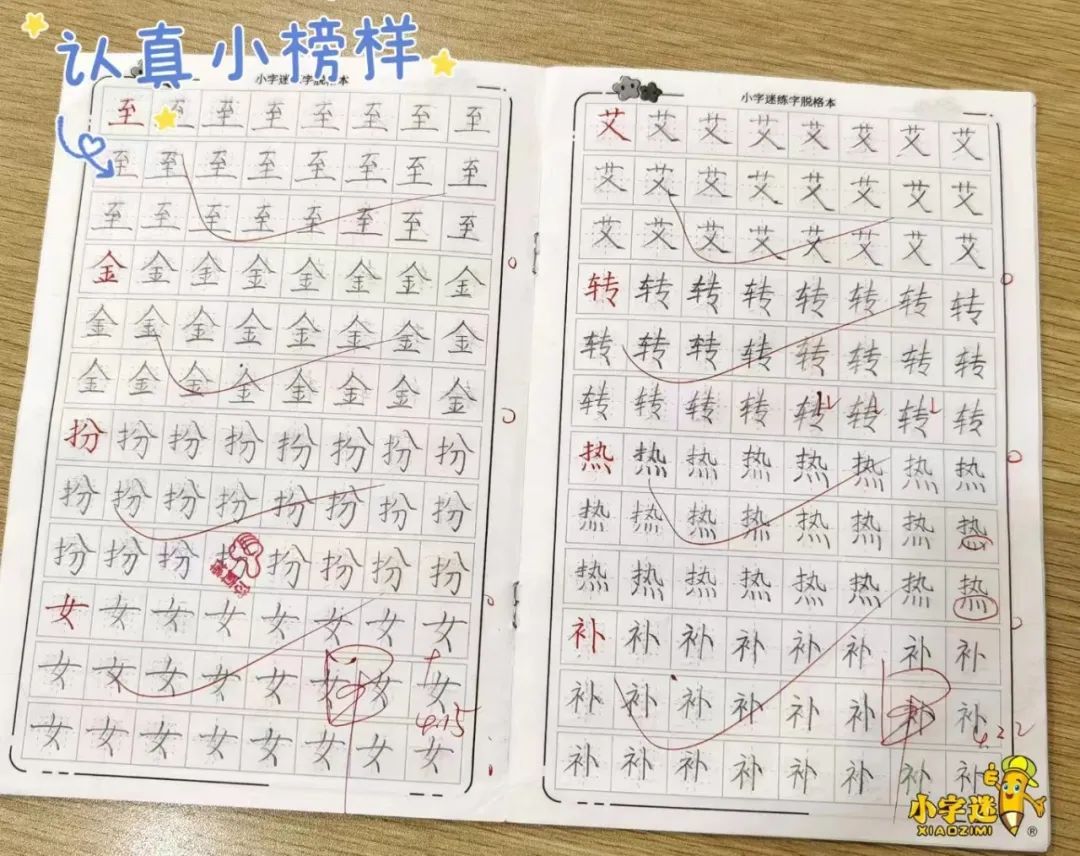 认真小榜样
小字迷练字脱格本
至至至至至至至至
至至至至至至至至
至至至至至至至至
金金金金金金金金
金金金金金金金金
金金金金金金金金
扮扮扮扮扮扮扮扮
扮扮扮扮扮扮扮扮
扮扮扮扮扮扮扮扮
女女女女女女女女
女女女女女女女女
4.15
女女女女女女女女
小字迷练字脱格本
艾艾艾艾艾艾艾艾
艾艾艾艾艾艾艾艾
艾艾艾艾艾艾艾艾
转转转转转转转转
转转转转转转转转
转转转转转转转转
热热热热热热热热
热热热热热热热热
热热热热热热热热
补补补补补补补补
补补补补补补补补
4.22
补补补补补补补补
小字迷
XIAOZIMI
®